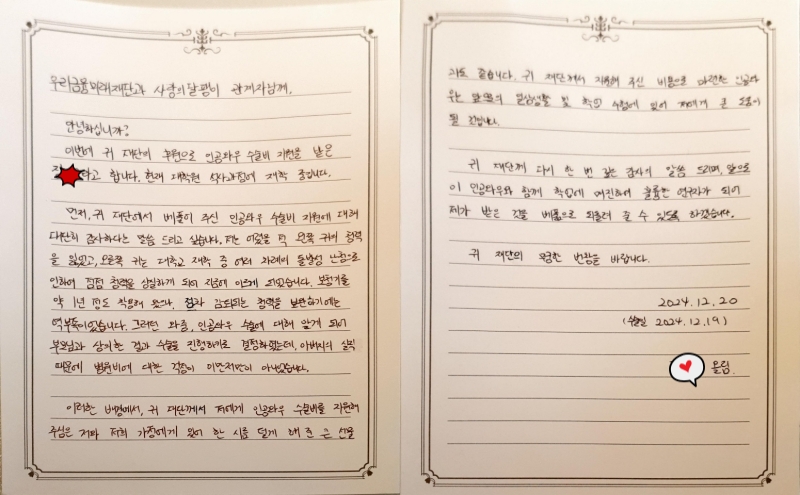 우리금융미래재단과 사랑의달팽이 관계자님께.
안녕하십니까?
이번에 귀 재단의 후원으로 인공와우 수술비 지원을 받은
라고 합니다. 현재 대학원 석사과정에 재학 중입니다.
먼저, 귀 재단에서 베풀어 주신 인공와우 수술비 지원에 대해
대단히 감사하다는 말씀 드리고 싶습니다. 저는 어렸을 적 왼쪽 귀의 청력
을 잃었고, 오른쪽 귀는 대학교 재학 중 여러 차례의 돌발성 난청으로
인하여 점점 청력을 상실하게 되어 지금에 이르게 되었습니다. 보청기를
약 1년 정도 착용해 왔으나, 점차 감퇴되는 청력을 보완하기에는
역부족이었습니다. 그러던 와중, 인공와우 수술에 대해 알게 되어
부모님과 상의한 결과 수술을 진행하기로 결정하였는데, 아버지의 실직
때문에 병원비에 대한 걱정이 이만저만이 아니었습니다.
이러한 배경에서, 귀 재단께서 저에게 인공와우 수술비를 지원해
주심은 저와 저희 가정에게 있어 한 시름 덜게 해 준 큰 선물
과도 같습니다. 귀 재단께서 지원해 주신 비용으로 마련한 인공와
우는 앞으로의 일상생활 및 학업 수행에 있어 저에게 큰 도움이
될 것입니다.
귀 재단께 다시 한 번 깊은 감사의 말씀 드리며, 앞으로
이 인공와우와 함께 학업에 매진하여 훌륭한 연구자가 되어
제가 받은 것을 베풂으로 되돌려 줄 수 있도록 하겠습니다.
귀 재단의 무궁한 번창을 바랍니다.
2024.12.20
(수술일 2024.12.19)
올림.